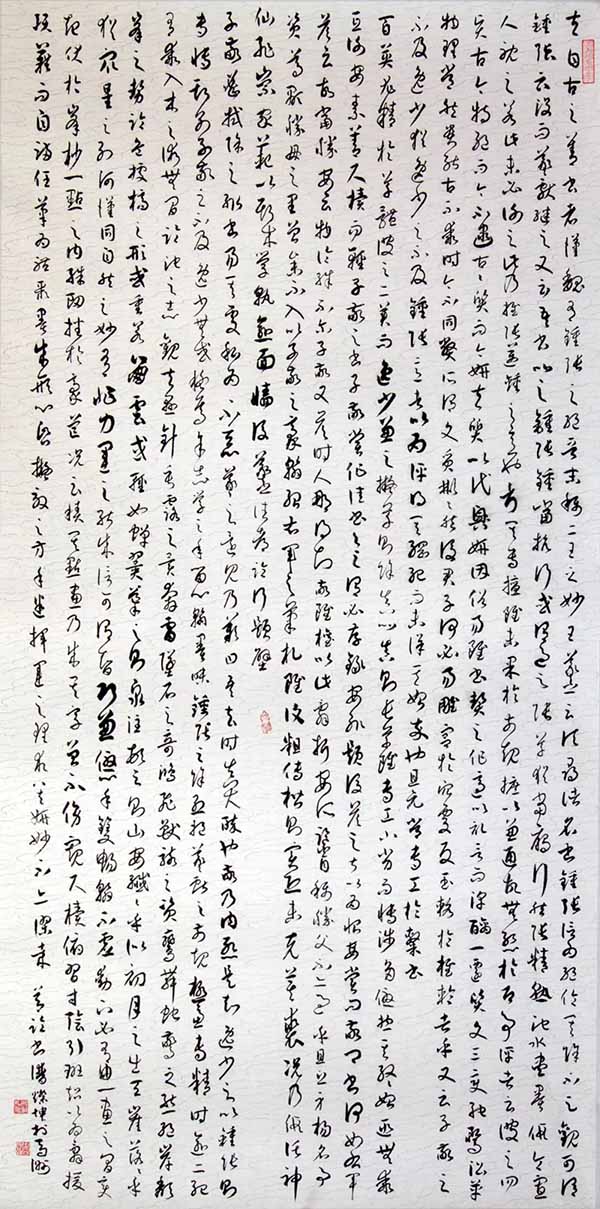 夫自古之善書者漢魏有鍾張之絕晉末稱二王之妙王羲之云頃尋諸名書鍾張信為絕倫其餘不足觀可謂
鍾張云沒而羲獻繼之又云吾書比之鍾張鍾當抗行或謂過之張草猶當雁行然張精熟池水盡墨假令寡
人耽之若此未必謝之此乃推張邁鍾之意也考其專擅雖未果於前規摭以兼通故無慚於即事評者云彼之四
賢古今特絕而今不逮古古質而今妍夫質以代興妍因俗易雖書契之作適以記言而淳醨一遷質文三變馳騖沿革
物理常然貴能古不乖時今不同弊所謂文質彬彬然後君子何必易雕宮於穴處反玉輅於椎輪者乎又云子敬之
不及逸少猶逸少之不及鍾張意者以為評得其綱紀而未詳其始卒也且元常專工於隸書
百英尤精於草體彼之二美而逸少兼之擬草則餘真比真則長草雖專工小劣而博涉多優總其終始匪無乖
互謝安素善尺牘而輕子敬之書子敬嘗作佳書與之謂必存錄安輒題後答之甚以為恨安嘗問敬卿書何如右軍
答云故當勝安云物論殊不爾子敬又答時人那得知敬雖權以此辭折安所鑒自稱勝父不亦過乎且立身揚名事
資尊顯勝母之里曾參不入以子敬之豪翰紹右軍之筆札雖復粗傳楷則實恐未克箕裘況乃假託神
仙恥崇家範以斯成學孰愈面牆後羲之往都臨行題壁
子敬密拭除之輒書易其處私為不惡羲之還見乃歎曰吾去時真大醉也敬乃內慚是知逸少之比鍾張則
專博斯別子敬之不及逸少無或疑焉余志學之年留心翰墨味鍾張之餘烈挹羲獻之前規極慮專精時逾二紀
有乖入木之術無間臨池之志觀夫懸針垂露之異奔雷墜石之奇鴻飛獸駭之資鸞舞蛇驚之態絕岸頹
峰之勢臨危據槁之形或重若崩雲或輕如蟬翼導之則泉注頓之則山安纖纖乎似初月之出天崖落落乎
猶眾星之列河漢同自然之妙有非力運之能成信可謂智巧兼優心手雙暢翰不虛動下必有由一畫之間變
起伏於峰杪一點之內殊衄挫於豪芒況云積其點畫乃成其字曾不傍窺尺牘俯習寸陰引班超以為辭援
項籍而自滿任筆為體聚墨成形心昏擬效之方手迷揮運之理求其妍妙不亦謬哉